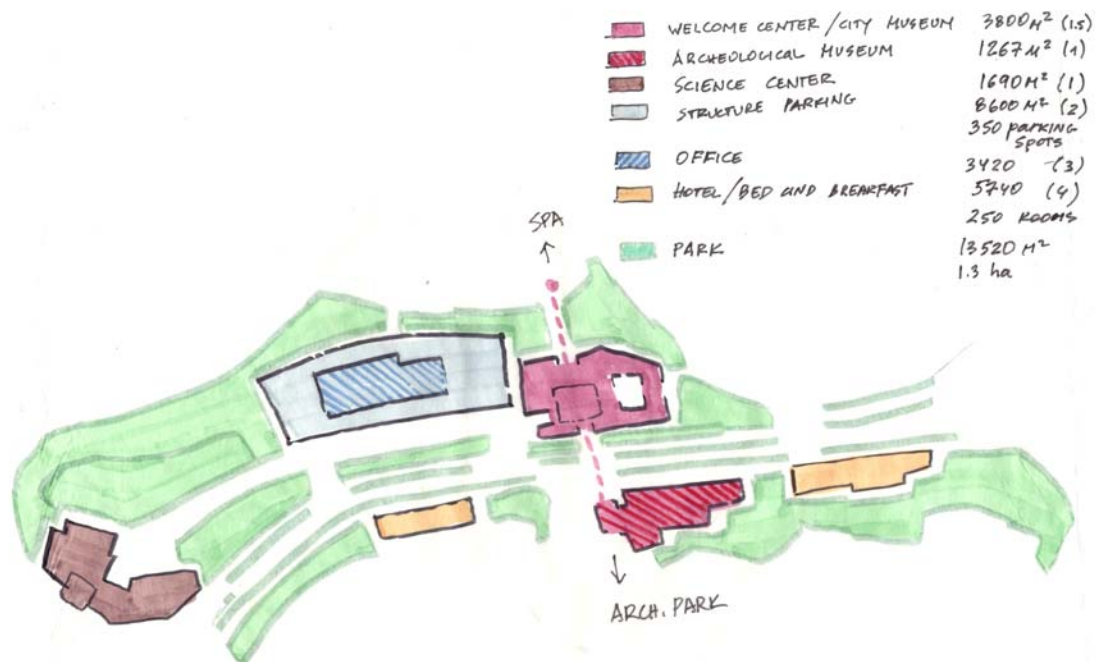 WELCOME CENTER / CITY MUSEUM 3800 M² (1.5)
ARCHEOLOGICAL MUSEUM 1267 M² (1)
SCIENCE CENTER 1690 M² (1)
STRUCTURE PARKING 8600 M² (2)
350 PARKING
SPOTS
OFFICE 3420 (3)
HOTEL / BED AND BREAKFAST 5740 (4)
250 ROOMS
PARK 13520 M²
1.3 ha
SPA
ARCH. PARK